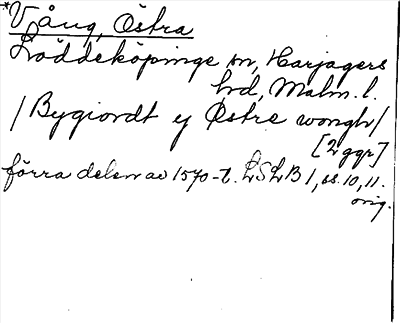 *Vång, Östra
Löddeköpinge sn, Harjagers
hd, Malm. l.
/Bygiordt ej Østre wongh/
[2 ggr]
förra delen av 1570-t. LSLB 1, ss. 10, 11.
orig.